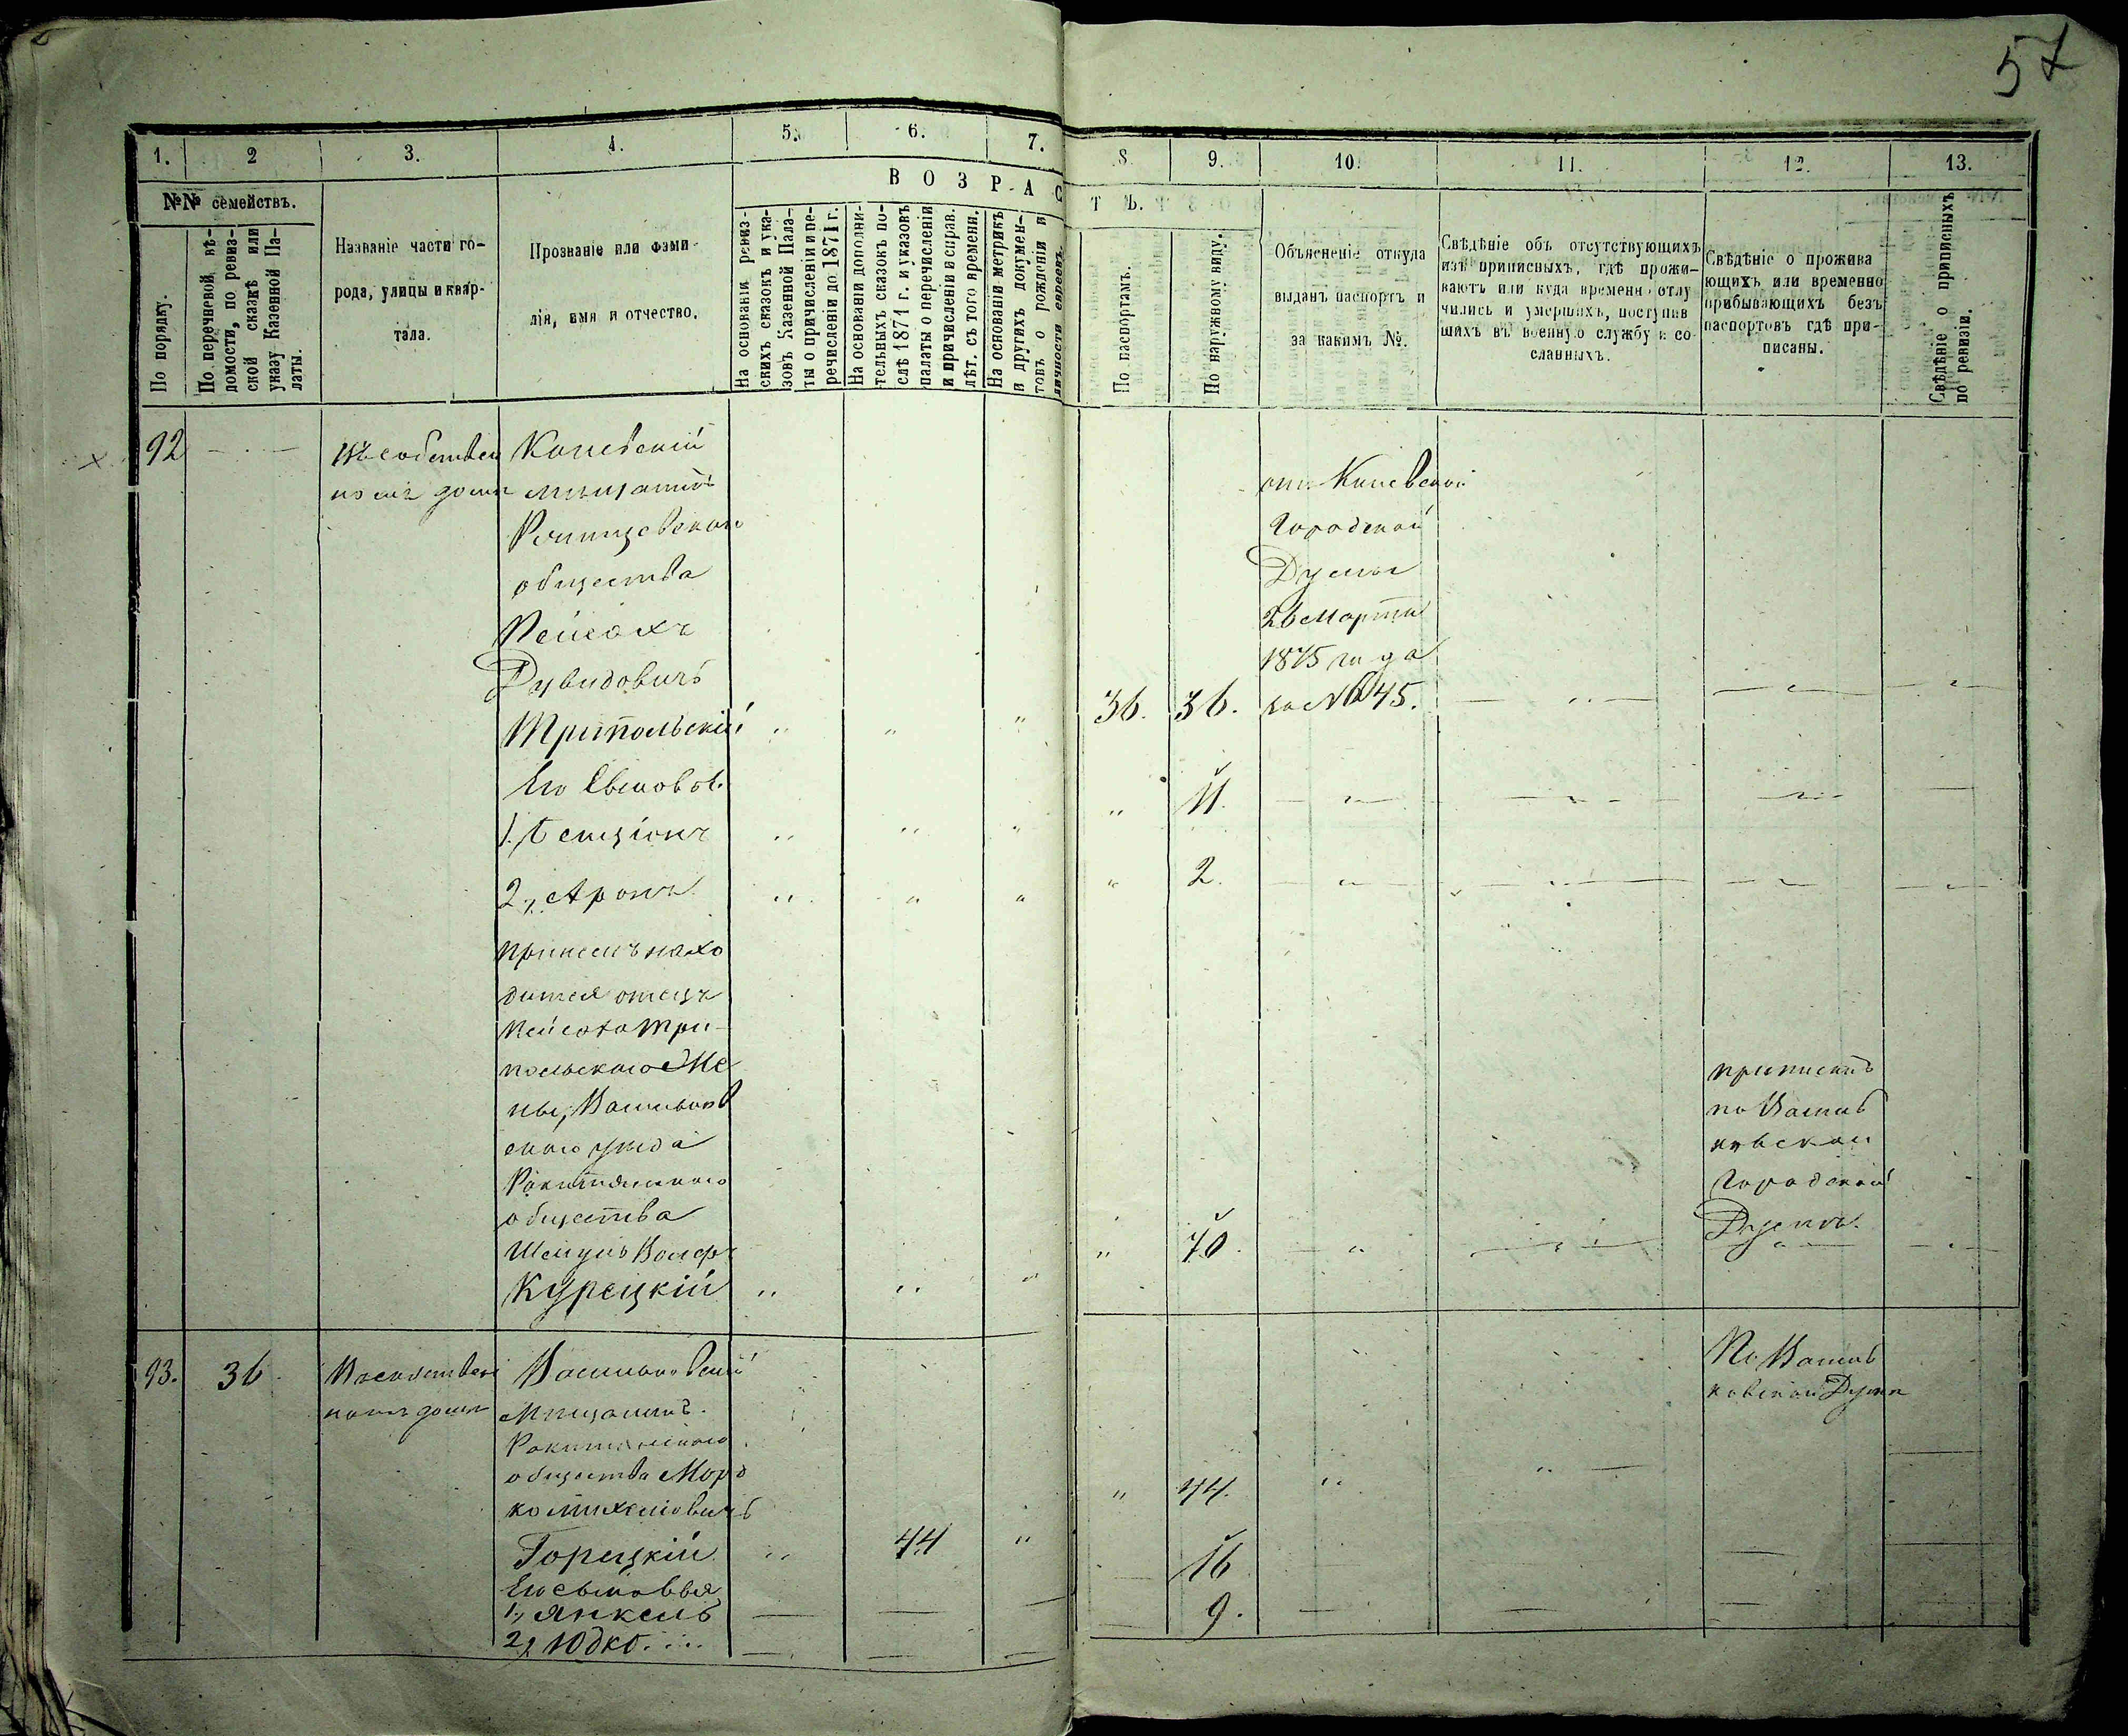 57
1.
2
3.
4.
5.
6.
7.
8.
9.
10.
11.
12.
13.
№№ семействъ.
По порядку.
По перечневой вѣ-
домости, по ревиз-
ской сказкѣ или
указу Казенной Па-
латы.
Названіе части го-
рода, улицы и квар-
тала.
Прозваніе или фами-
лія, имя и отчество.
ВОЗРАС
ТЪ.
На основаніи ревиз-
скихъ сказокъ и ука-
зовъ Казенной Пала-
ты о причисленіи и пе-
речисленіи до 1871 г.
На основаніи дополни-
тельныхъ сказокъ по-
слѣ 1871 г. и указовъ
палаты о перечисленіи
и причисленіи и справ.
лѣт. съ того времени.
На основаніи метрикъ
и другихъ докумен-
товъ о рожденіи и
личности евреевъ.
По паспортамъ.
По наружному виду.
Объясненіе откуда
выданъ паспортъ и
за какимъ №.
Свѣдѣніе объ отсутствующихъ
изъ приписныхъ, гдѣ прожи-
ваютъ или куда временно отлу
чились и умершихъ, поступив
шихъ въ военную службу и со
сланныхъ.
Свѣдѣніе о прожива
ющихъ или временно
прибывающихъ безъ
паспортовъ гдѣ при-
писаны.
Свѣдѣніе о приписныхъ
по ревизіи.
92
Въ собствен
номъ домѣ
Кіевскій
мѣщанинъ
общества
Пейсахъ
Дувидовичъ
Трипольскій
36. 36.
отъ Кіевской
Городской
Думы
26 Марта
1875 года
за № 645.
Его Сыновья.
1,
11.
2, Аронъ
2.
при немъ нахо
дится отецъ
Пейсаха Три-
польскаго
Васильков
скаго уѣзда
Ракитянскаго
общества
Шмуль Волф
Курецкій
70.
приписанъ
по Василь
ковской
Городской
Думѣ.
93.
36.
Въ собствен
номъ домѣ
Васильковскій
Мѣщанинъ
Ракитянскаго
общества Морд
ко Михелевичъ
Горецкій
44
44.
По Василь
ковской Думѣ
Его сыновья
1, Янкель
16
2, Юдко....
9.